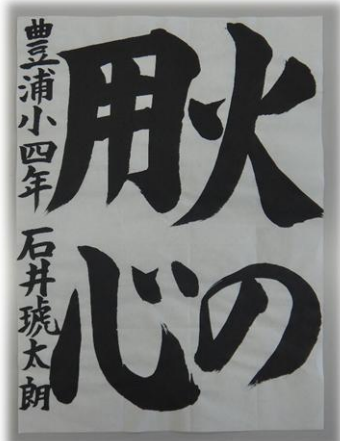 火の
用心
豊浦小四年 石井琥太朗